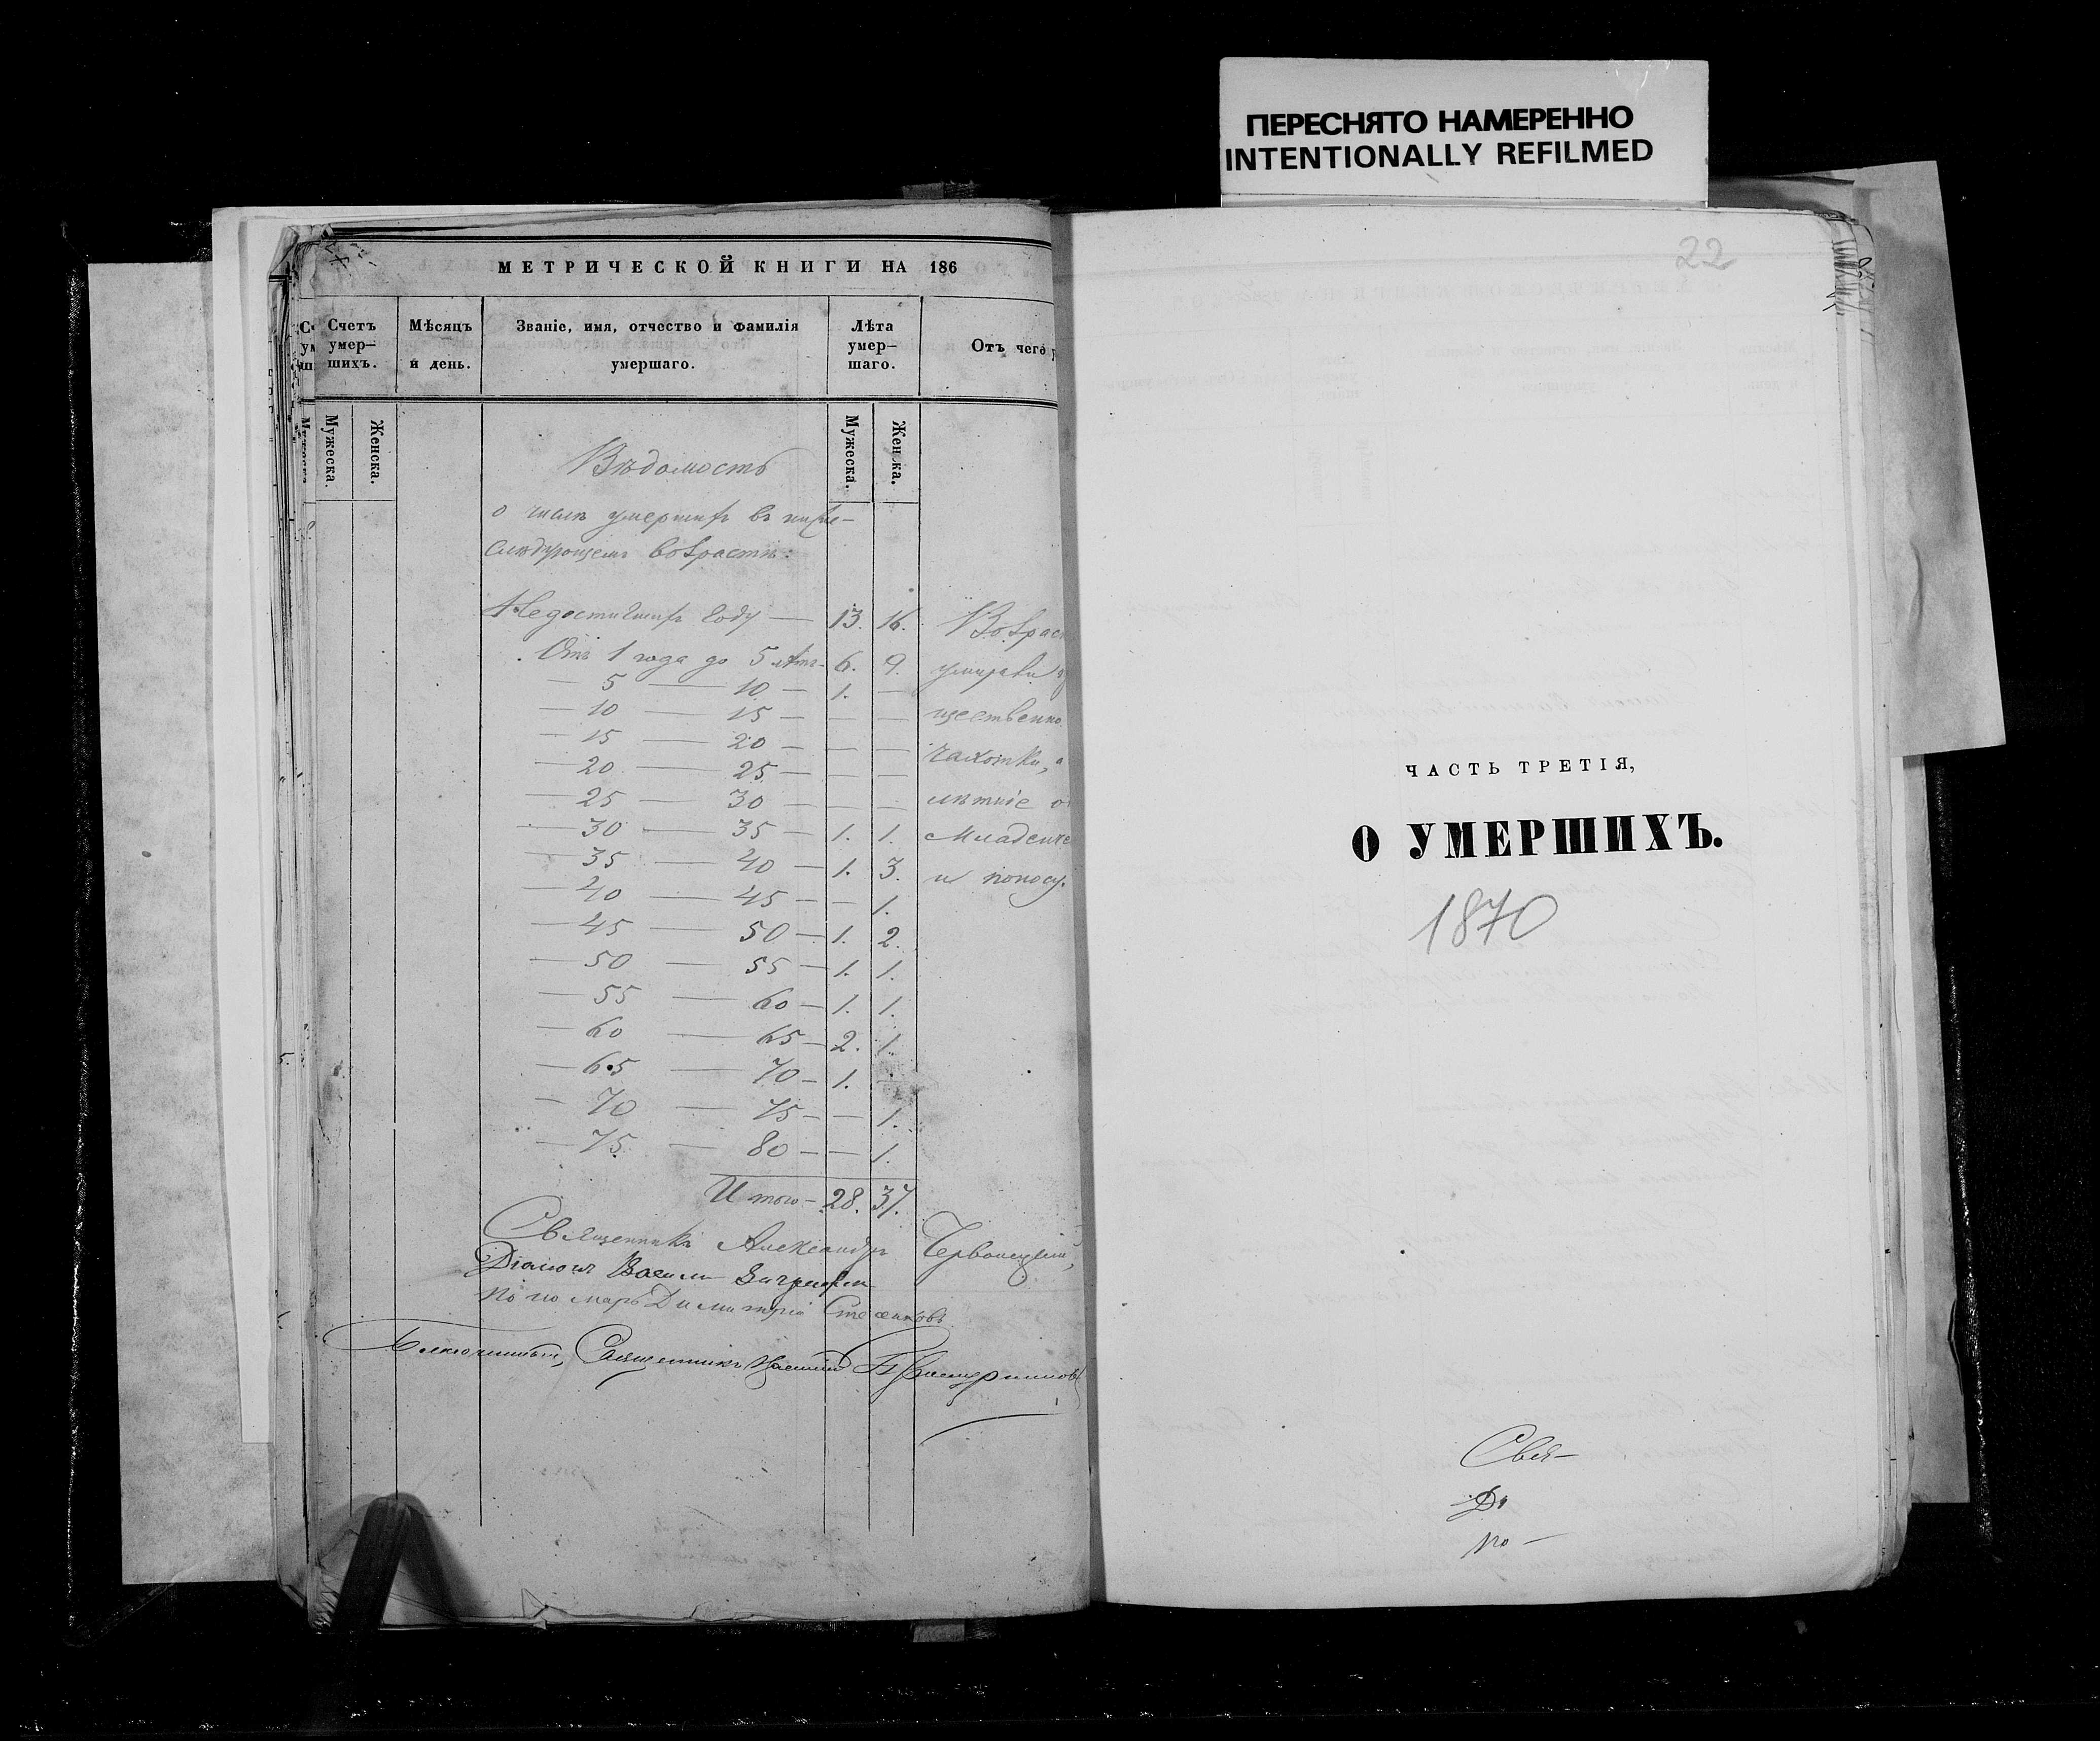 ПЕРЕСНЯТО НАМЕРЕННО
INTENTIONALLY REFILMED
МЕТРИЧЕСКОЙ КНИГИ НА 186
Счетъ умер–шихъ.
Мѣсяцъ и день.
Званіе, имя, отчество и фамилія умершаго.
Лѣта умер–шаго.
Отъ чего
Мужеска.
Женска.
Мужеска.
Женска.
Вѣдомость
о числѣ умершихъ въ ниже–
слѣдующемъ возрастѣ:
Недостигшихъ году — 13. 16.
Отъ 1 года до 5 лѣтъ – 6. 9.
— 5 — 10 — 1. —
— 10 — 15 — — —
— 15 — 20 — — —
— 20 — 25 — — —
— 25 — 30 — — —
— 30 — 35 — 1. 1.
— 35 — 40 — 1. 3.
— 40 — 45 — — 1.
— 45 — 50 — 1. 2.
— 50 — 55 — 1. 1.
— 55 — 60 — 1. 1.
— 60 — 65 — 2. 1.
— 65 — 70 — 1.
— 70 — 75 — — 1.
— 75 — 80 — — 1.
Итого – 28. 37.
Возрас
умирали
щественно
чахотки,
лѣтніе о
младенче
и поносу.
Священникъ Александръ
Діаконъ Василій
Пономарь Димитрій
Благочинный, Священникъ
22
ЧАСТЬ ТРЕТІЯ,
О УМЕРШИХЪ.
1870
Свя–
Ді
По –